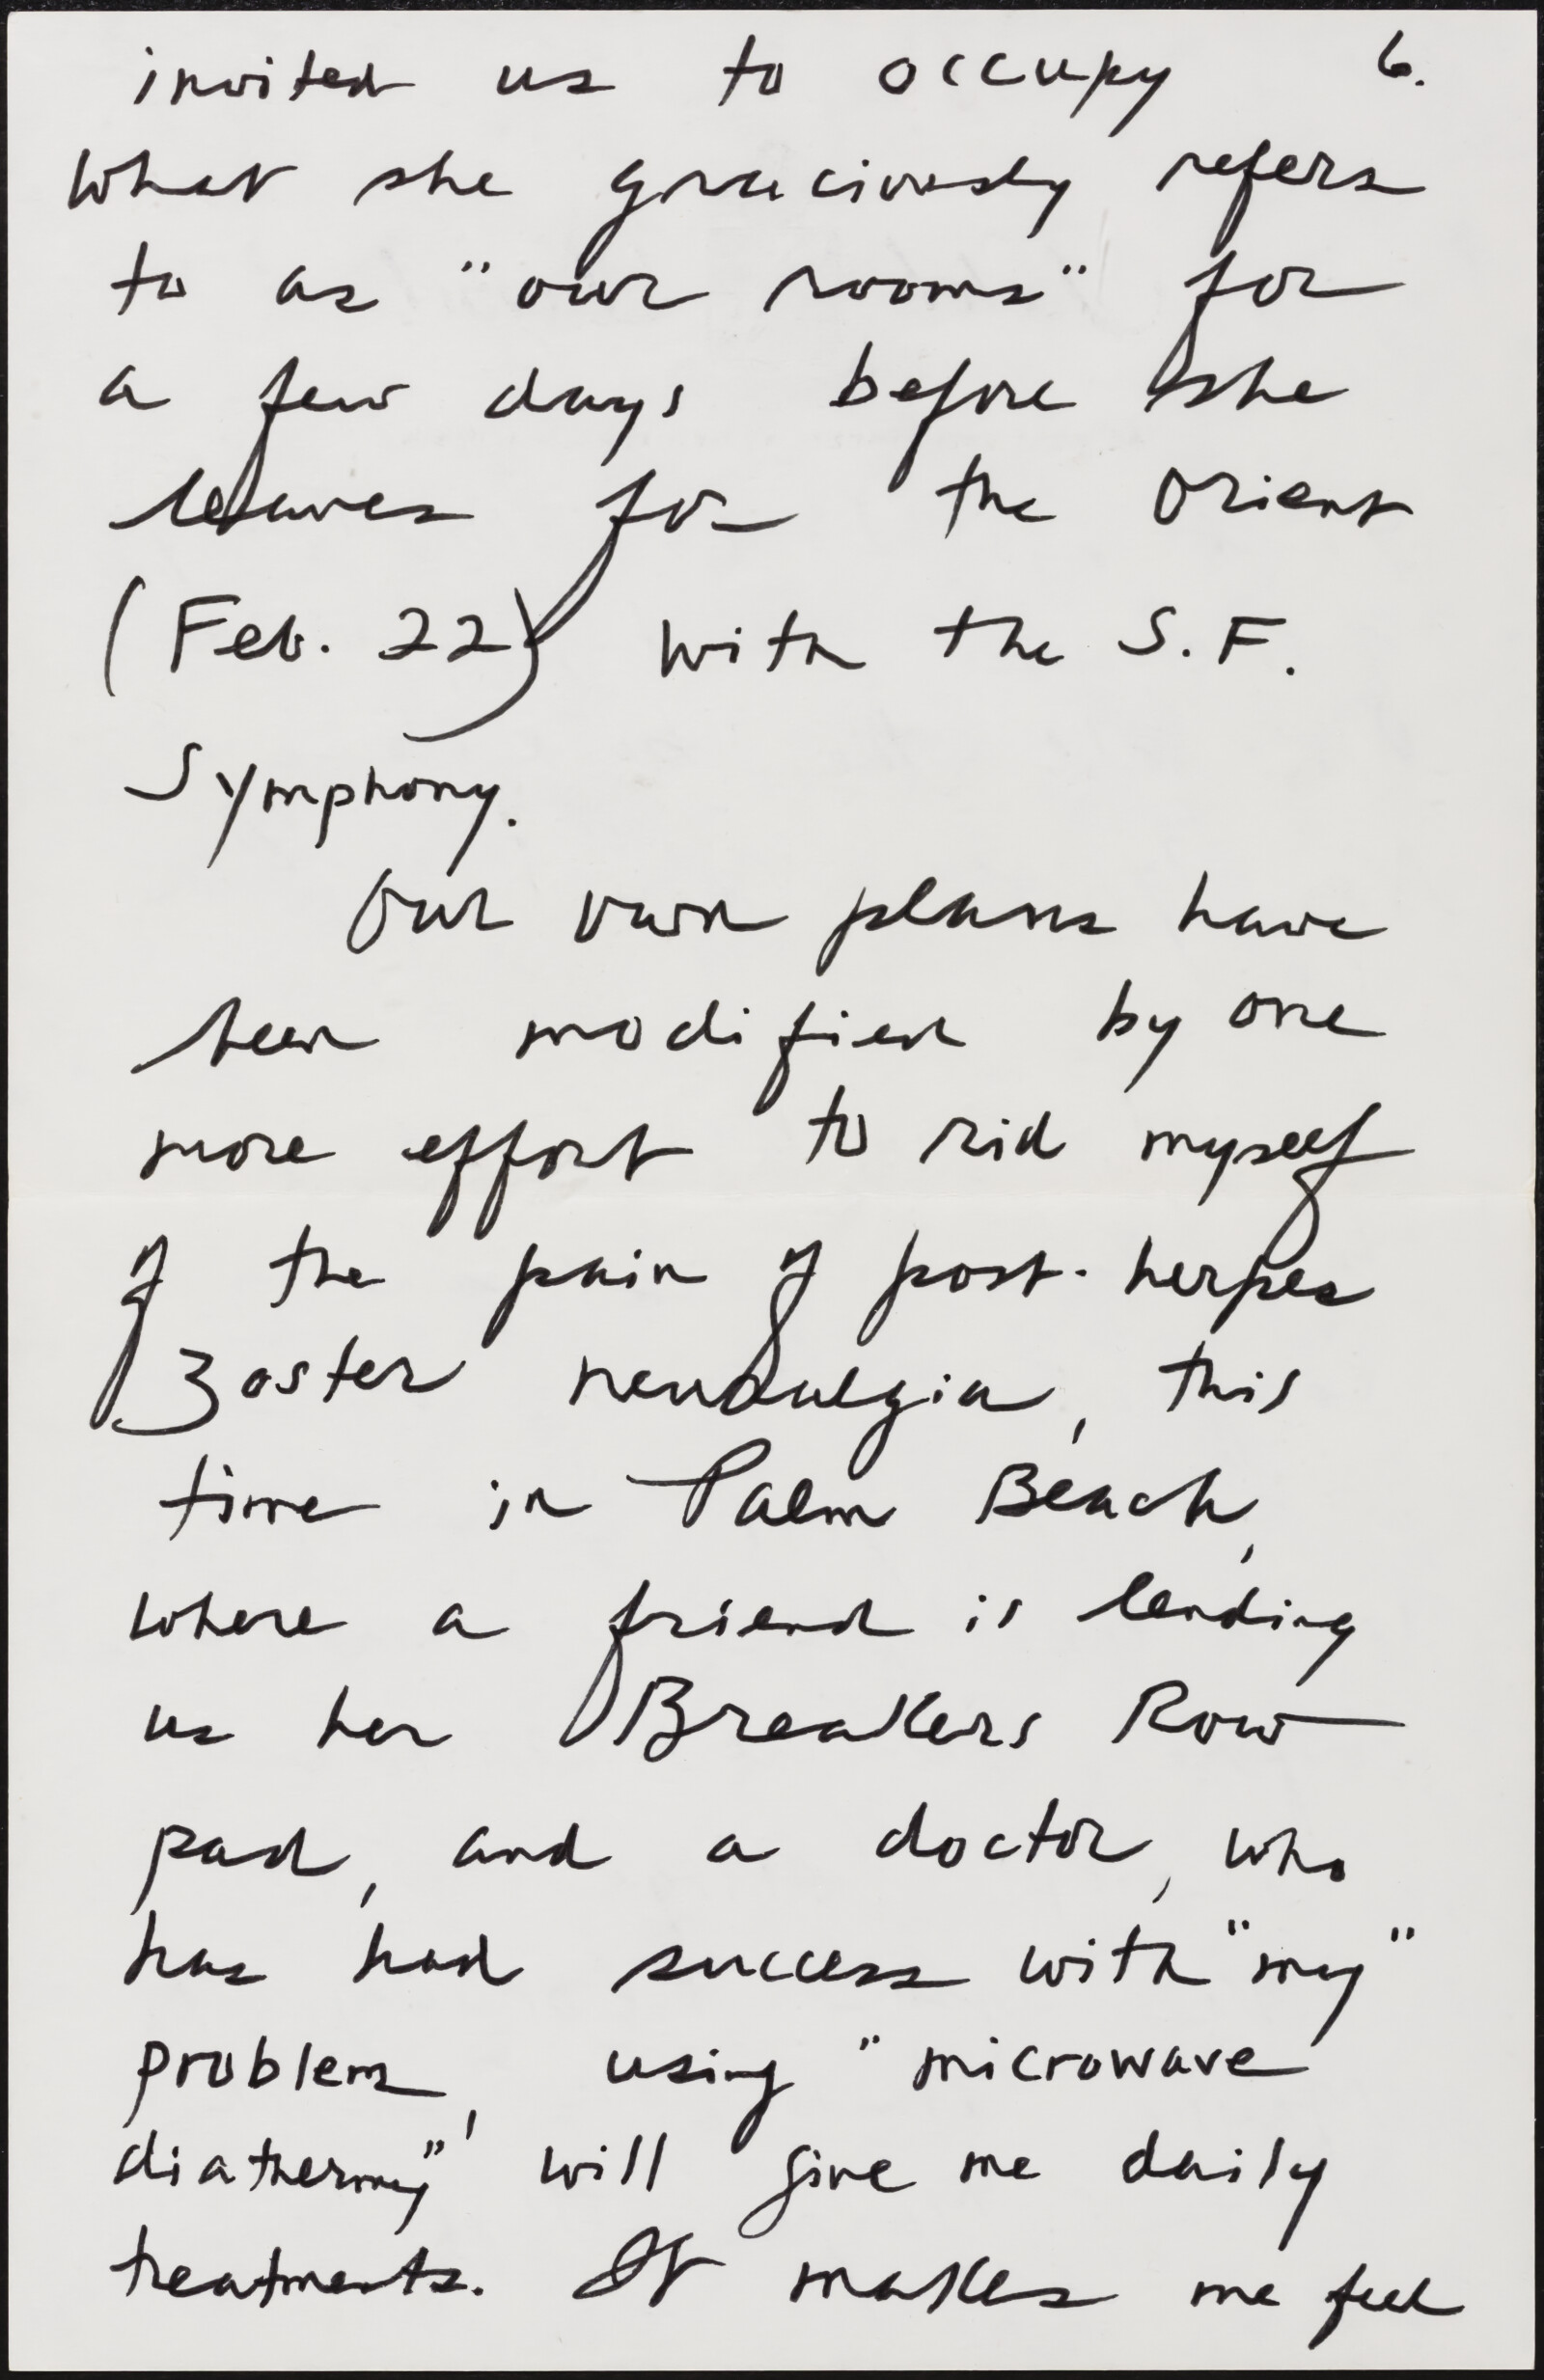 invited us to occupy 6.
what she graciously refers
to as "our rooms" for
a few days before she
leaves for the Orient
(Feb. 22) with the S.F.
Symphony.
Our own plans have
been modified by one
more effort to rid myself
of the pain of post-herpes
Zoster neuralgia, this
time in Palm Beach,
where a friend is lending
us her Breakers Row
pad, and a doctor, who
has had success with "my"
problem, using "microwave
diathermy", will give me daily
treatments. It makes me feel